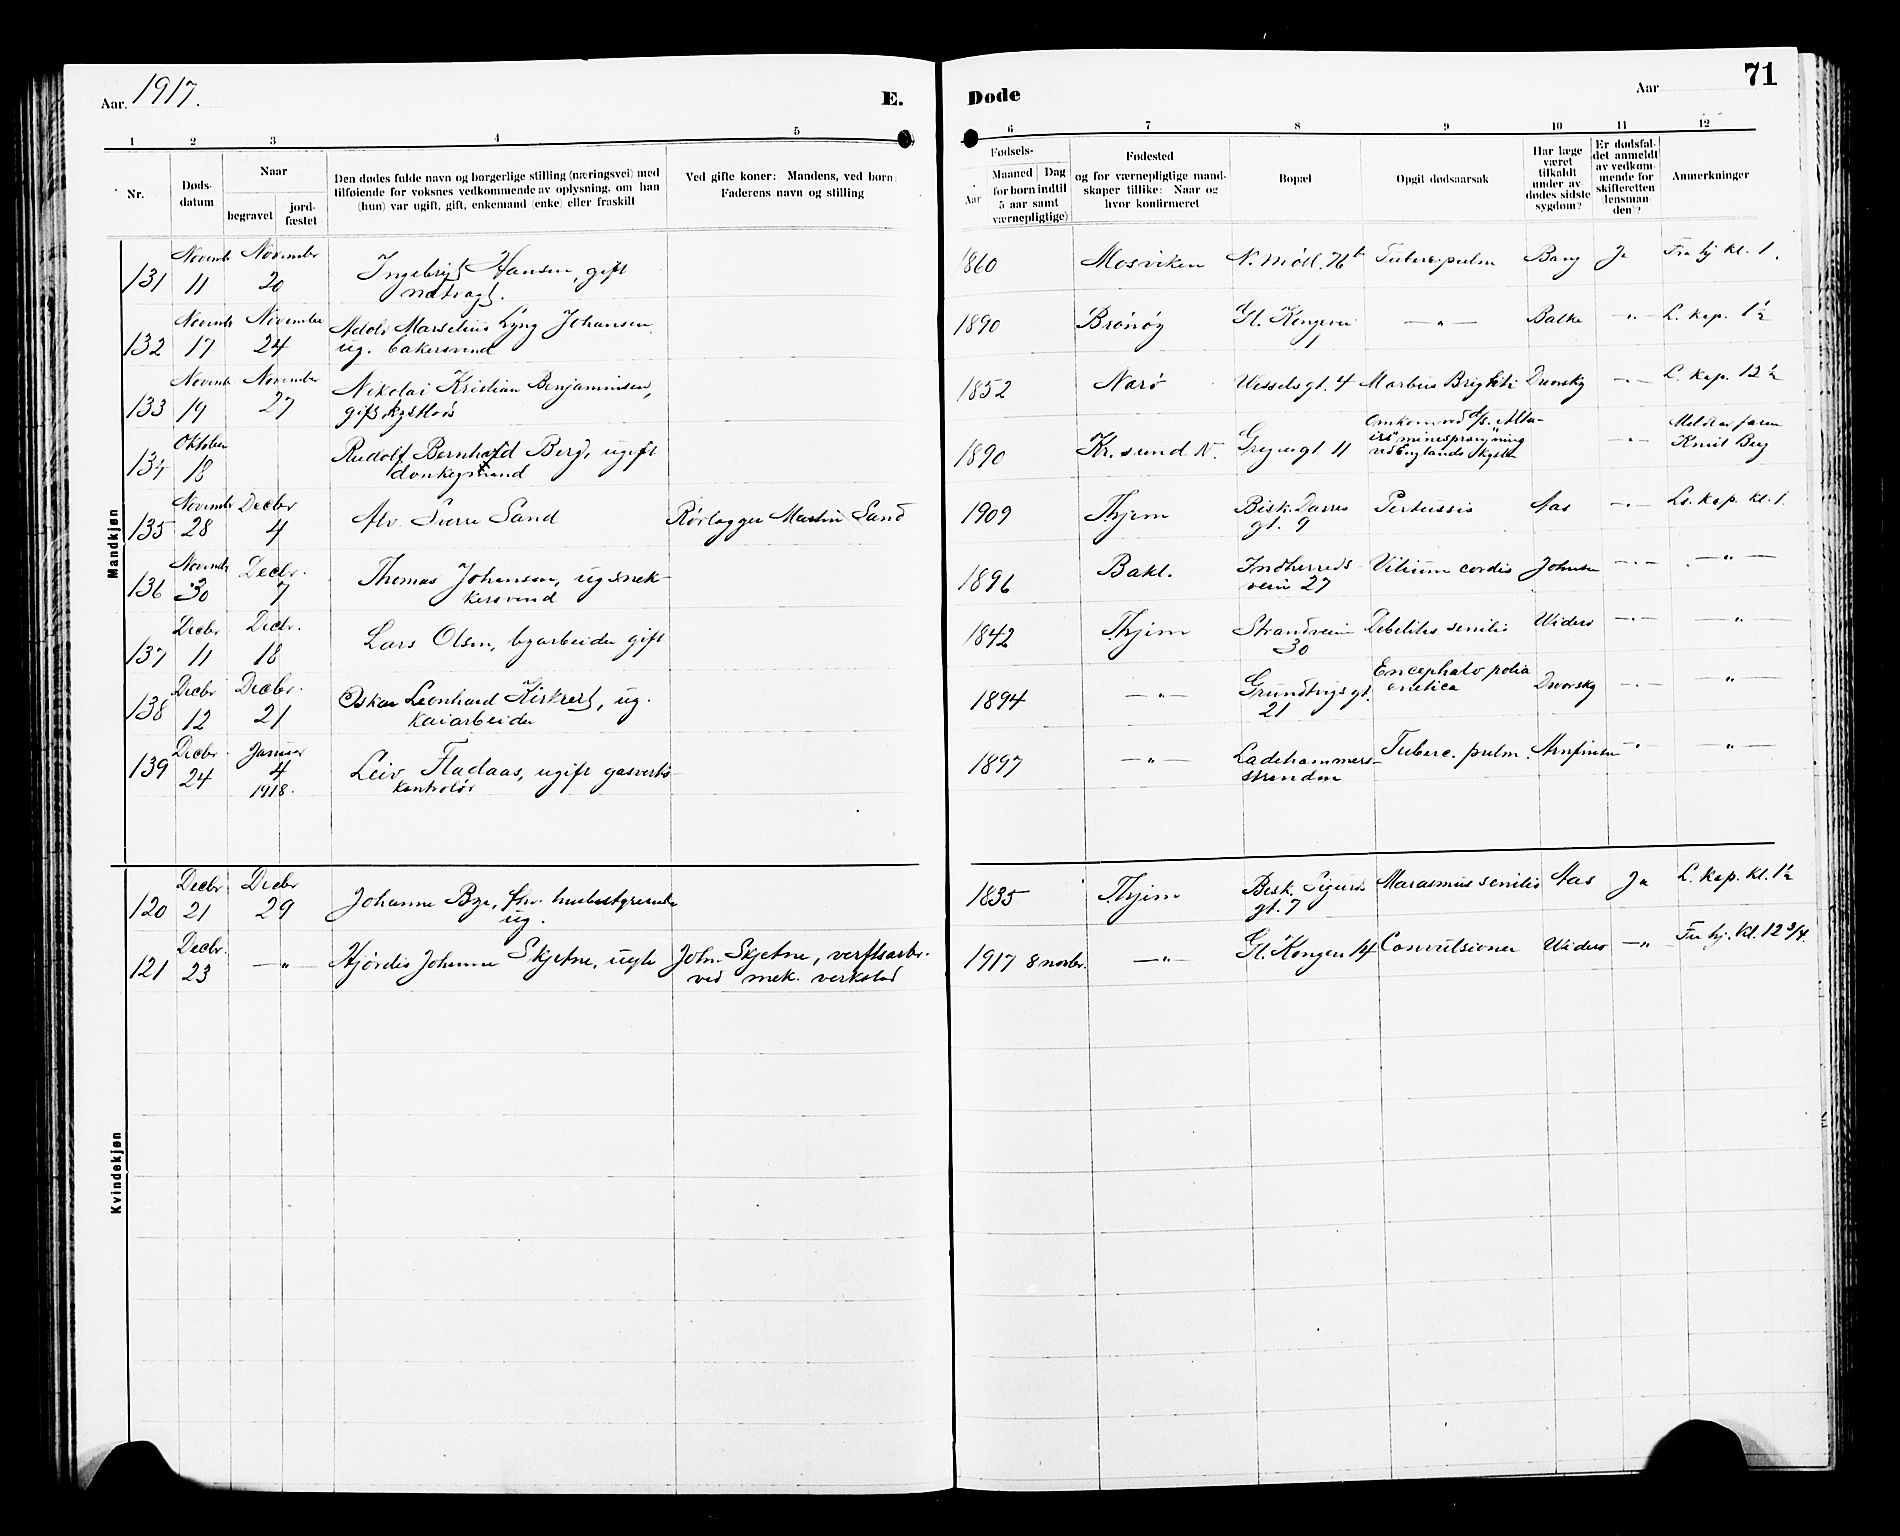 Aar. 1917.
E.
Døde
Aar
71
1 2 3 4 5 6 7 8 9 10 11 12
Nr.
Døds-
datum
Naar
begravet
jord-
fæstet
Den dødes fulde navn og borgerlige stilling (næringsvei) med
tilføiende for voksnes vedkommende av oplysning, om han
(hun) var ugift, gift, enkemand (enke) eller fraskilt
Ved gifte koner: Mandens, ved børn:
Faderens navn og stilling
Fødsels-
Aar
Maaned Dag
for børn indtil
5 aar samt
værnepligtige)
Fødested
og for værnepligtige mand-
skaper tillike: Naar og
hvor konfirmeret
Bopæl
Opgit dødsaarsak
Har læge
været
tilkaldt
under av-
dødes sidste
sygdom?
Er dødsfal-
det anmeldt
av vedkom-
mende for
skifteretten
(lensman-
den)?
Anmerkninger
Mandkjøn
131 Novemb 11 November 20 Ingebrigt Hansen, gift
natvagt.
1860 Mosviken N. Møll. 76b Tuberc. pulm Bang Ja Fra hj kl. 1.
132 Novemb 17 November 24 Adolv Marselius Lyng Johansen
ug. bakersvend
1890 Brønøy Gl. Kongevei —"— Balke —"— L. kap. 1½
133 Novemb 19 November 27 Nikolai Kristian Benjaminsen,
gift,
1852 Narø Wesselsgt. 4 Morbus Brightii Dvorsky —"— L. kap. 12½
134 Oktober 18 Rudolf Bernhard Berg, ugift
donkeymand
1890 Kr.sund N. gt 11 Omkom ved d/s. Alta-
irs minesprængning
ved Englands kyst
—"— Meldt av faren
Knut Berg
135 Novembr 28 Decbr 4 Alv. Sverre Sand Rørlægger Martin Sand
1909 Thjem Bisk. Darres
gt. 9 Pertussis Aas —"— Ls. kap. kl. 1.
136 Novembr 30 Decbr. 7 Thomas Johansen, ug snek-
kersvend
1896 Bakl. Indherreds-
vein 27 Vitium cordis Johnsen —"— —"—
137 Decbr 11 Decbr. 18 Lars Olsen, byarbeider gift
1842 Thjem Strandveien
30 Debilitas senilis Widerø —"— —"—
138 Decbr 12 Decbr. 21 Oskar Leonhard Kirkreit, ug.
kaiarbeider
1894 —"— Grundtvigs gt.
21 Encephalo Dvorsky —"— —"—
139 Decbr. 24 Januar 4
1918. Leiv Fladaas, ugift gasverks-
kontrolør
1897 —"— Ladehammers-
stranden Tuberc. pulm. Arnfinsen —"— —"—
Kvindekjøn
120 Decbr 21 Decbr 29 Johanna Bye, fhv. husbestyrerinde
ug.
1835 Thjem Bisk. Sigurds
gt. 7 Marasmus senilis Aas Ja L. kap. kl. 1½
121 Decbr. 23 —"— Hjørdis Johanne Skjetne, ugte John. Skjetne, verftsarbr.
ved mek. verksted
1917 8 novbr. —"— Gl. Kongev 14 Convulsioner Widerø —"— Fra hj. kl. 12 3/4.